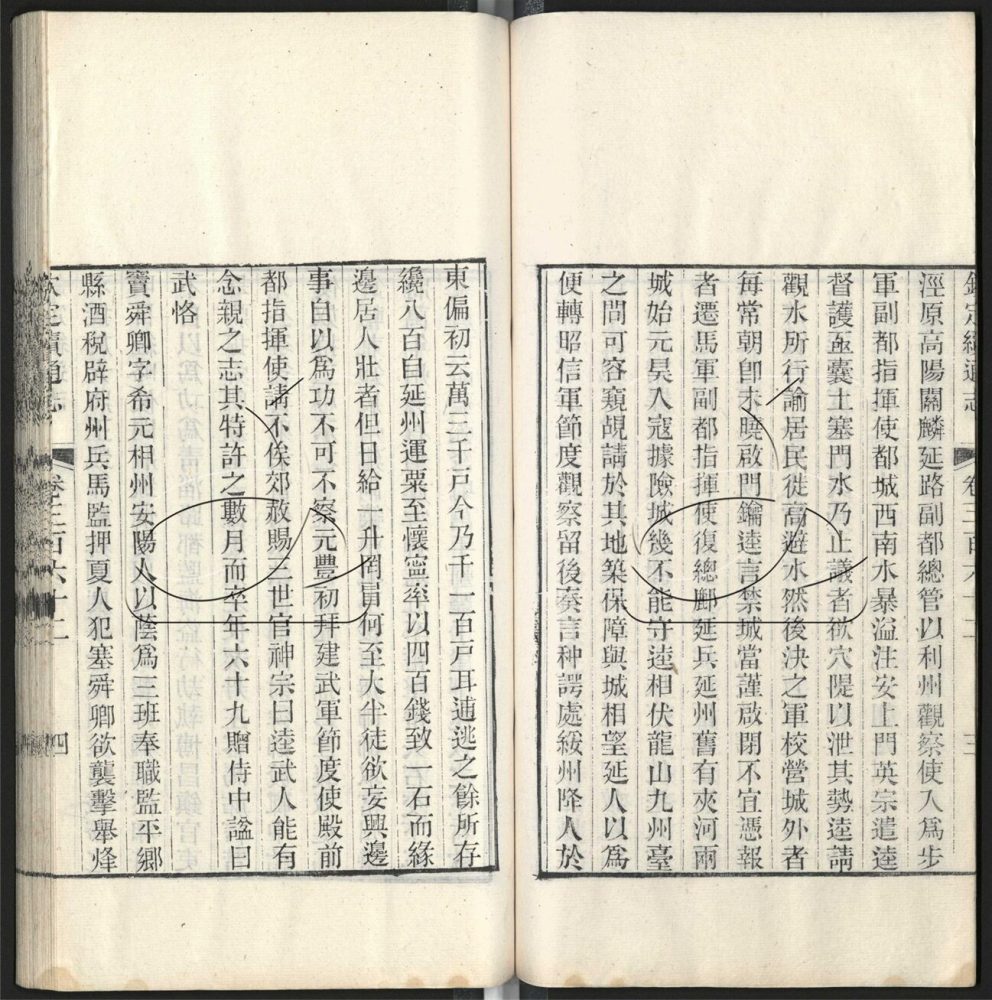 欽定續通志 卷三百六十二 三
涇原高陽關鄜延路副都總管以利州觀察使入爲步
軍副都指揮使都城西南水暴溢注安上門英宗遣逵
督護亟囊土塞門水乃止議者欲穴隄以泄其勢逵請
觀水所行諭居民徙高避水然後決之軍校營城外者
每常朝卽未曉啟門鑰逵言禁城當謹啟閉不宜憑報
者遷馬軍副都指揮使復總鄜延兵延州舊有夾河兩
城始元昊入寇據險城幾不能守逵相伏龍山九州臺
之間可容窺覘請於其地築保障與城相望延人以爲
便轉昭信軍節度觀察留後奏言种諤處綏州降人於
東偏初云萬三千戸今乃千一百戸耳逋逃之餘所存
纔八百自延州運粟至懷寧率以四百錢致一石而緣
邊居人壯者但日給一升罔冒何至大半徒欲妄興邊
事自以爲功不可不察元豐初拜建武軍節度使殿前
都指揮使請不俟郊赦賜三世官神宗曰逵武人能有
念親之志其特許之數月而卒年六十九贈侍中諡曰
武恪
竇舜卿字希元相州安陽人以蔭爲三班奉職監平鄉
縣酒稅辟府州兵馬監押夏人犯塞舜卿欲襲擊舉烽
欽定續通志 卷三百六十二 四